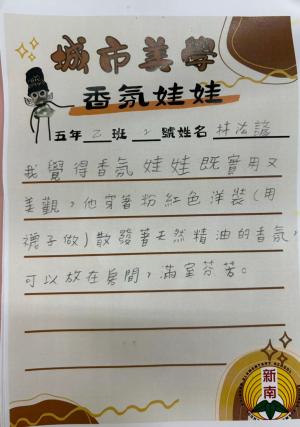 城市美學
香氛娃娃
五年乙班2號姓名林法諺
我覺得香氛娃娃既實用又
美觀，他穿著粉紅色洋裝(用
襪子做)散發著天然精油的香氛，
可以放在房間，滿室芬芳。
新南